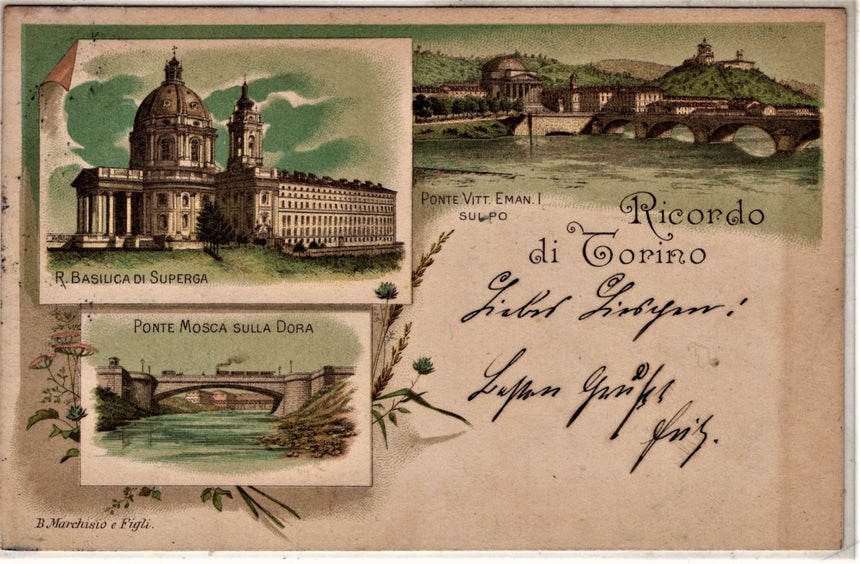 R. BASILICA DI SUPERGA
PONTE VITT. EMAN. I
SUL PO
Ricordo
di Torino
PONTE MOSCA SULLA DORA
Liebes Lieschen!
Besten Gruß
Fritz.
B. Marchisio e Figli.